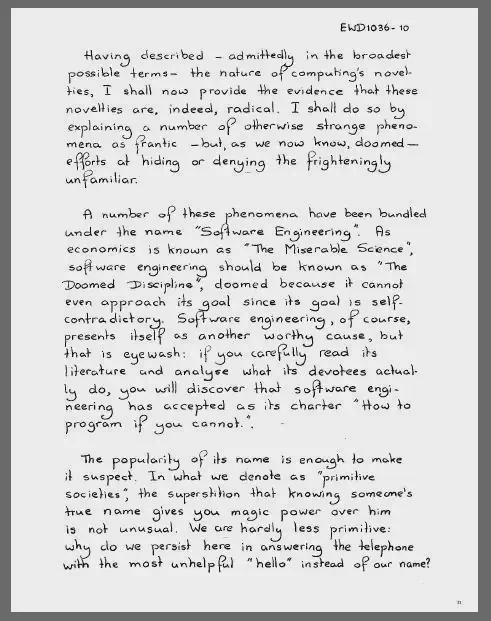 EWD1036-10
Having described – admittedly in the broadest
possible terms – the nature of computing's novel-
ties, I shall now provide the evidence that these
novelties are, indeed, radical. I shall do so by
explaining a number of otherwise strange pheno-
mena as frantic – but, as we now know, doomed –
efforts at hiding or denying the frighteningly
unfamiliar.
A number of these phenomena have been bundled
under the name "Software Engineering". As
economics is known as "The Miserable Science",
software engineering should be known as "The
Doomed Discipline", doomed because it cannot
even approach its goal since its goal is self-
contradictory. Software engineering, of course,
presents itself as another worthy cause, but
that is eyewash: if you carefully read its
literature and analyse what its devotees actual-
ly do, you will discover that software engi-
neering has accepted as its charter "How to
program if you cannot.".
The popularity of its name is enough to make
it suspect. In what we denote as "primitive
societies", the superstition that knowing someone's
true name gives you magic power over him
is not unusual. We are hardly less primitive:
why do we persist here in answering the telephone
with the most unhelpful "hello" instead of our name?